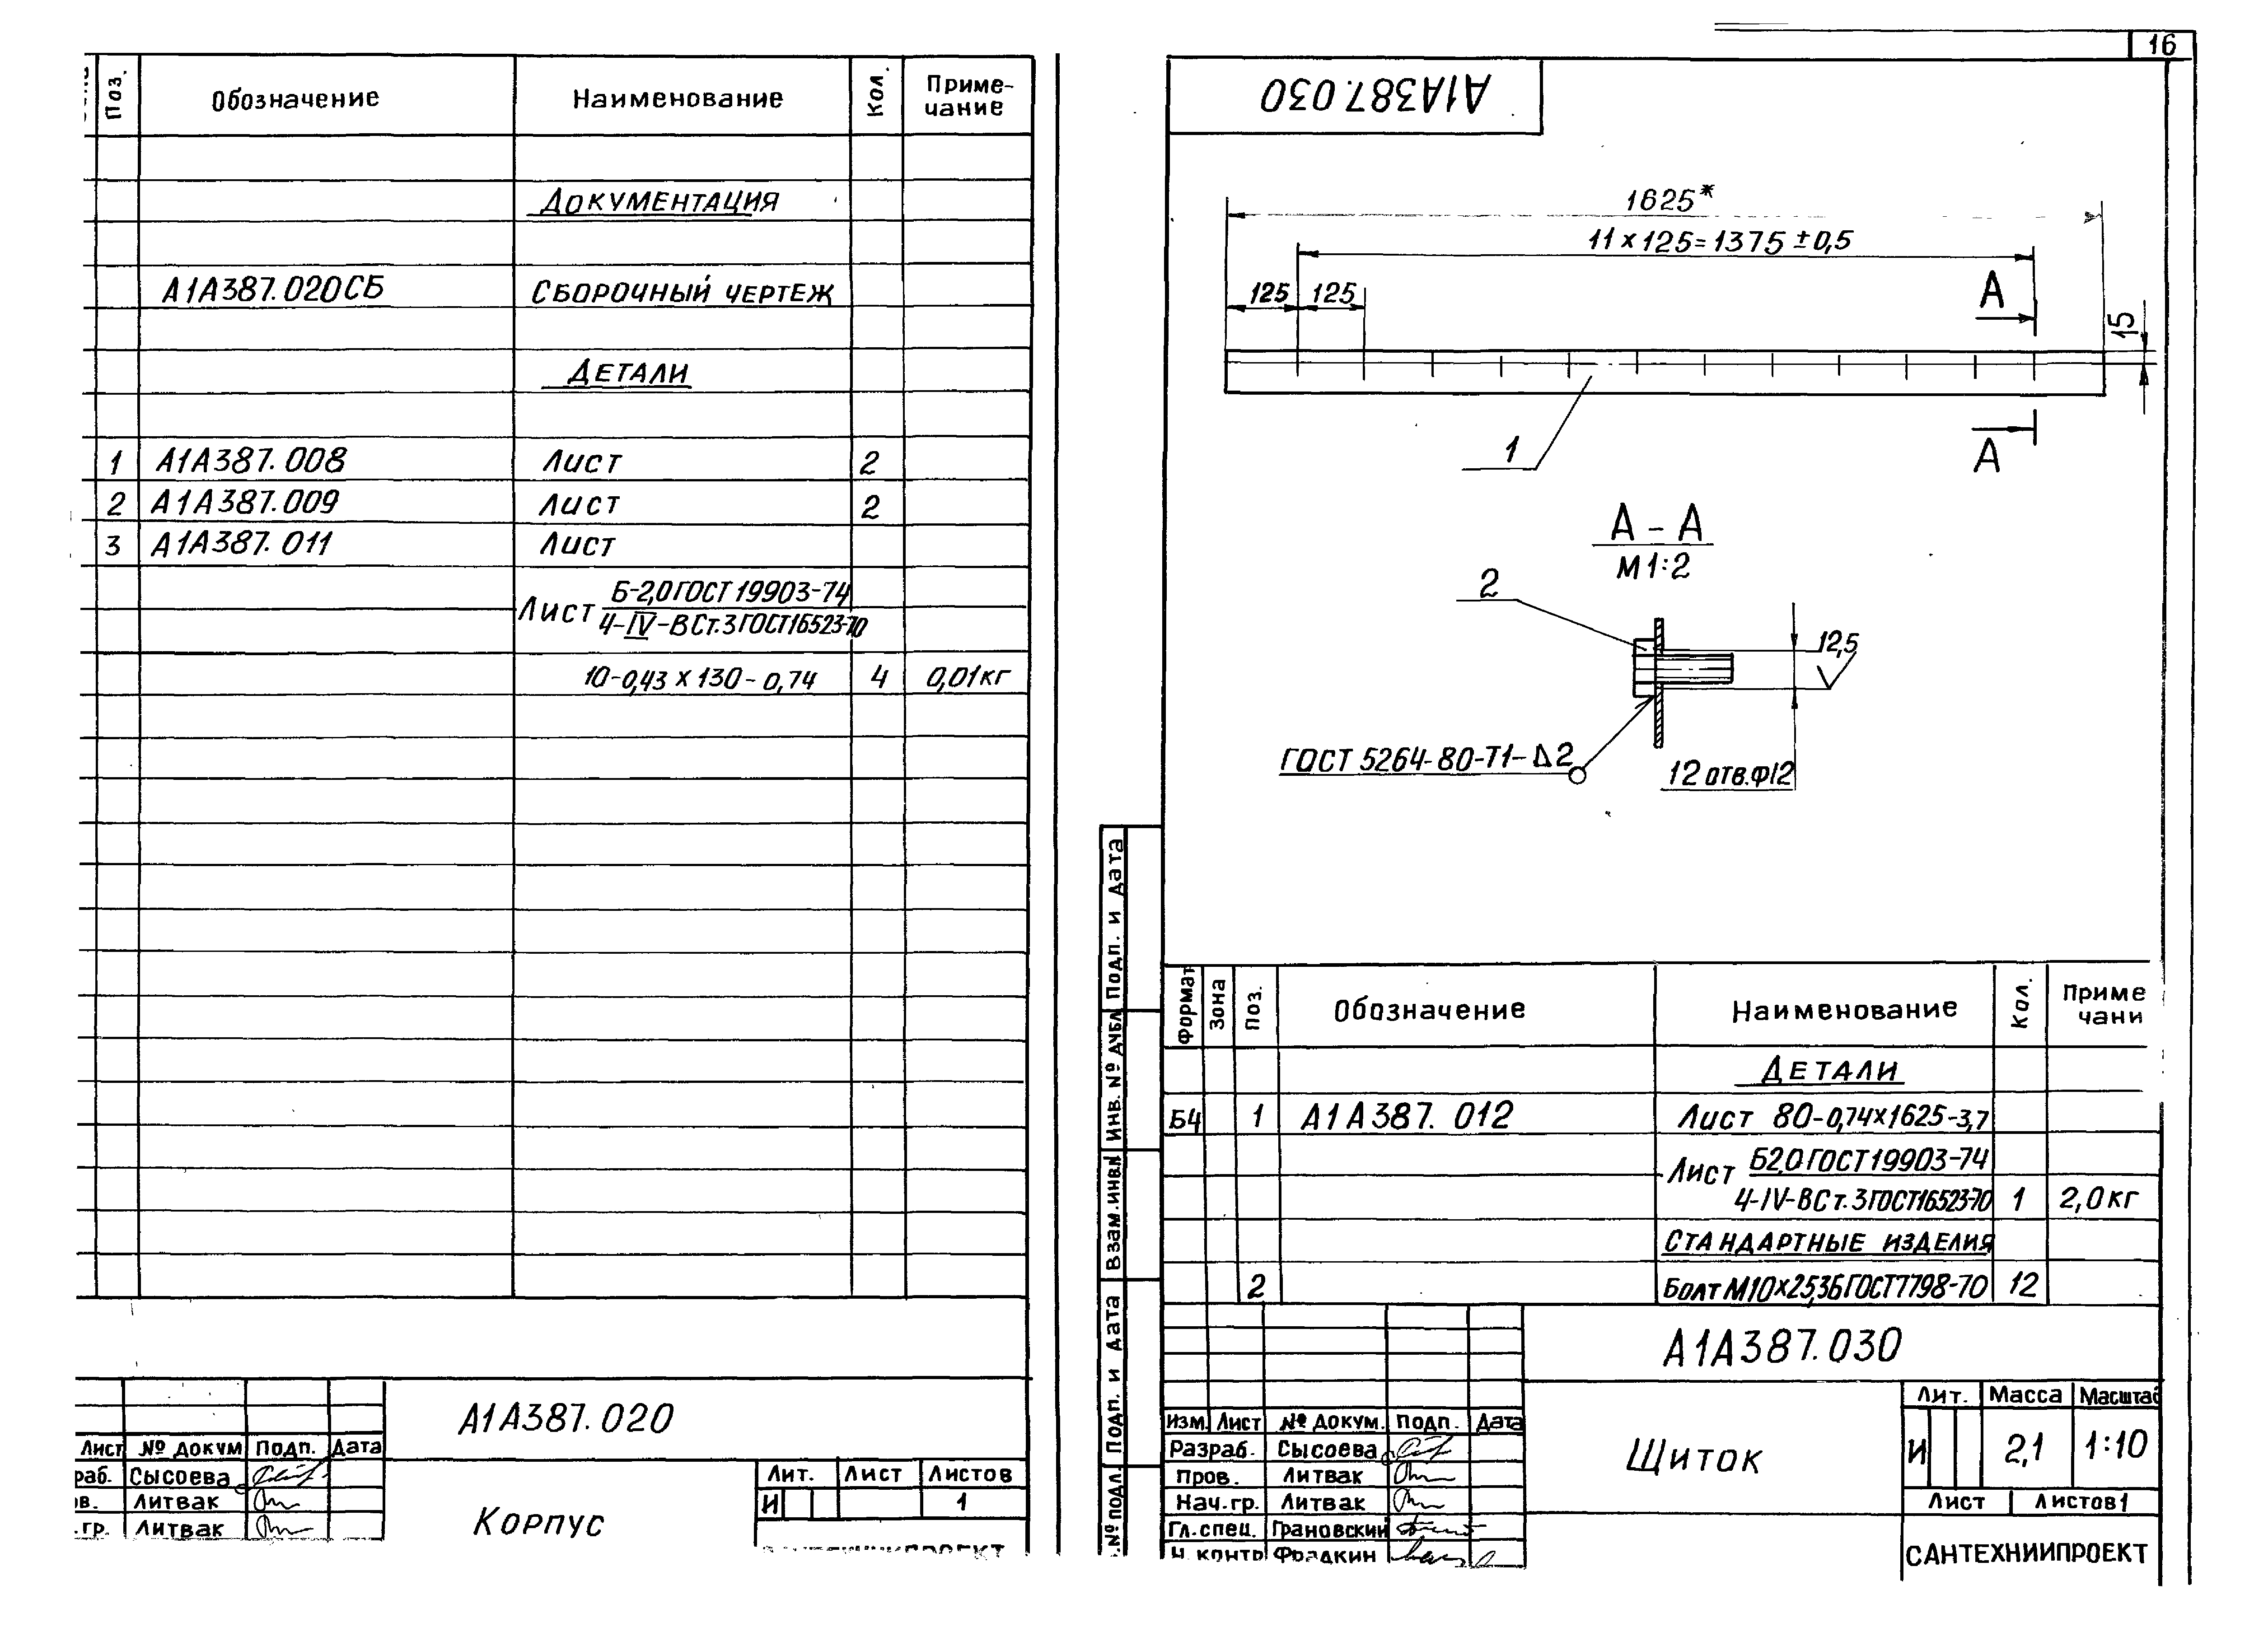 Поз.
Обозначение
Наименование
Кол.
Приме-
чание
Документация
А1А387.020СБ
Сборочный чертеж
Детали
1 А1А387.008 Лист 2
2 А1А387.009 Лист 2
3 А1А387.011 Лист
Лист Б-2,0 ГОСТ 19903-74
4-IV-ВСт.3 ГОСТ 16523-70
10-0,43 х 130-0,74 4 0,01кг
А1А387.020
Лист № докум Подп. Дата
раб. Сысоева
ов. Литвак
.гр. Литвак
Корпус
Лит. Лист Листов
И 1
16
А1А387.030
1625*
11 х 125=1375 ±0,5
125 125
А
15
1
А
А - А
М1:2
2
12,5
ГОСТ 5264-80-Т1-△2
12 отв.ф12
Подп. и дата
Инв. № дубл
Взам.инв.
Подп. и дата
.№ подл.
Формат
Зона
Поз.
Обозначение
Наименование
Кол.
Приме
чани
Детали
Б4 1 А1А387.012 Лист 80-0,74х1625-3,7
Лист Б2,0 ГОСТ 19903-74
4-IV-ВСт.3 ГОСТ16523-70 1 2,0кг
Стандартные изделия
2 Болт М10х25,36 ГОСТ7798-70 12
А1А387.030
Изм. Лист № докум. Подп. Дата
Разраб. Сысоева
Пров. Литвак
Нач.гр. Литвак
Гл.спец. Грановский
Н.контр Фрадкин
Щиток
Лит. Масса Масштаб
И 2,1 1:10
Лист Листов 1
САНТЕХНИИПРОЕКТ